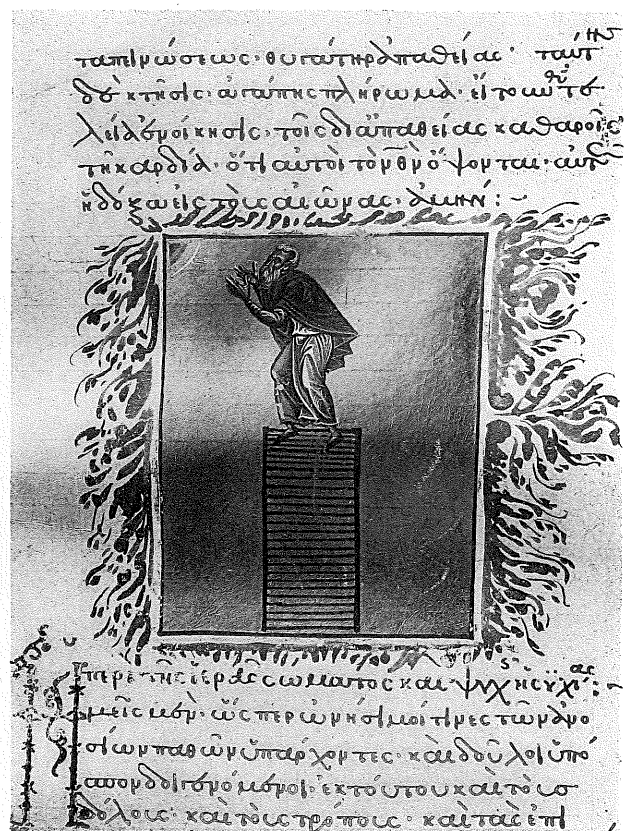 ταπεινώσεως· θυγάτηρ ἀπαθείας· ταύτης
δὲ κτῆσις· ἀγάπης πλήρωμα· εἴτουν θῦ τε
λεία ἐνοίκησις· τοῖς δι ἀπαθείας καθαροῖς
τῆ καρδία· ὅτι αὐτοὶ τὸν θν ὄψονται· αὐτῶ
ἡ δόξα εἰς τοὺς αἰῶνας· ἀμήν:~
περὶ τῆς ἱερᾶς σώματος καὶ ψυχῆς ἡσυχίας:~
Ἡμεῖς μὲν· ὥσπερ ὠνήσιμοί τινες τῶν ἀνο
σίων παθῶν ὑπάρχοντες· καὶ δοῦλοι ὑπό
σπονδοι γενόμενοι· ἐκ τούτου καὶ τοὺς
δόλους· καὶ τοὺς τρόπους· καὶ τὰς ἐπι